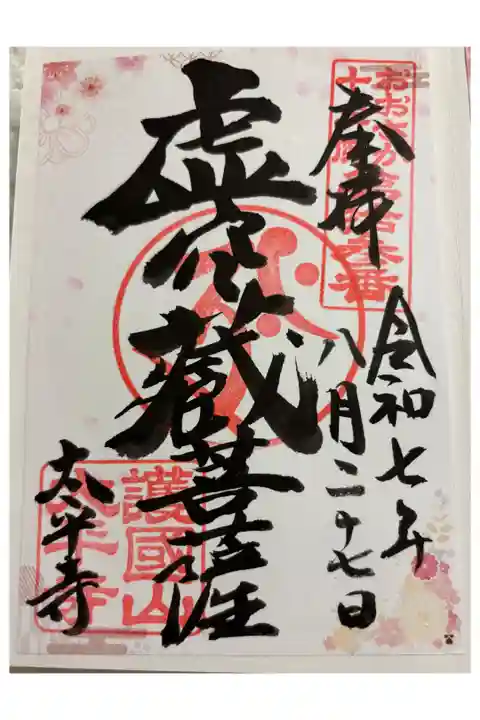 奉拝
令和七年
八月二十七日
虚空蔵菩薩
太平寺
おおさか十三佛第拾参番
護國山
太平寺